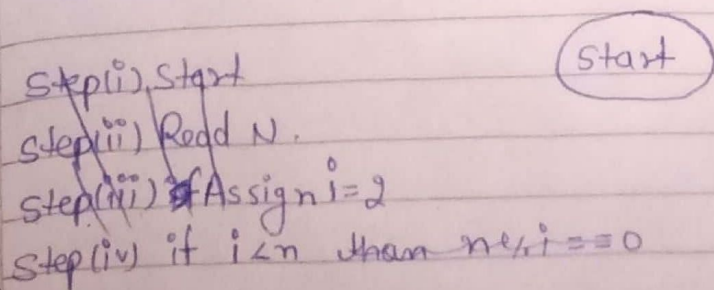 Start
Step(i) Start
Step(ii) Read N.
Step(iii) Assign i=2
Step(iv) if i<n than n%i==0